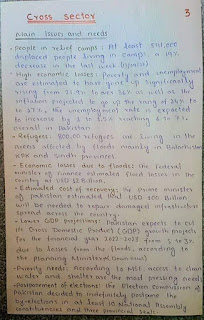 Cross Sector
3
Main Issues and needs
• People in relief camps: At least 541,000
displaced people living in camps, a 19%
decrease in the last week
• High economic losses: Poverty and unemployment
are estimated to have gone up significantly
rising from 21.9% to over 36% as well as the
inflation expected to go up the range of 24% to
to 27%, the unemployment rate is expected
to increase by 1 to 6% reaching 6 to 7%
overall in pakistan
• Refugees: 800,00 refugees are living in the
areas affected by floods mainly in Balochistan
KPK and Sindh province
• Economic losses due to floods: The Federal
minister of finance estimated flood losses in the
country as USD
• Estimated cost of recovery: The prime minister
of pakistan estimated that USD 100 Billion
will be needed to repair damaged infrastructure
spread across the country.
• Lower GDP projections: Pakistan expects to cut
its Gross Domestic Product (GDP) growth projects
for the financial year 2022-2023 from 5 to 3%
due to losses from the floods, according to
the Planning Ministry
• Priority needs: According to access to clean
water and shelter are the most pressing needs
• Postponement of elections: the Election Commission of
Pakistan decided to indefinitely postpone the
by-elections in at least 10 National Assembly
constituencies and three provincial seats